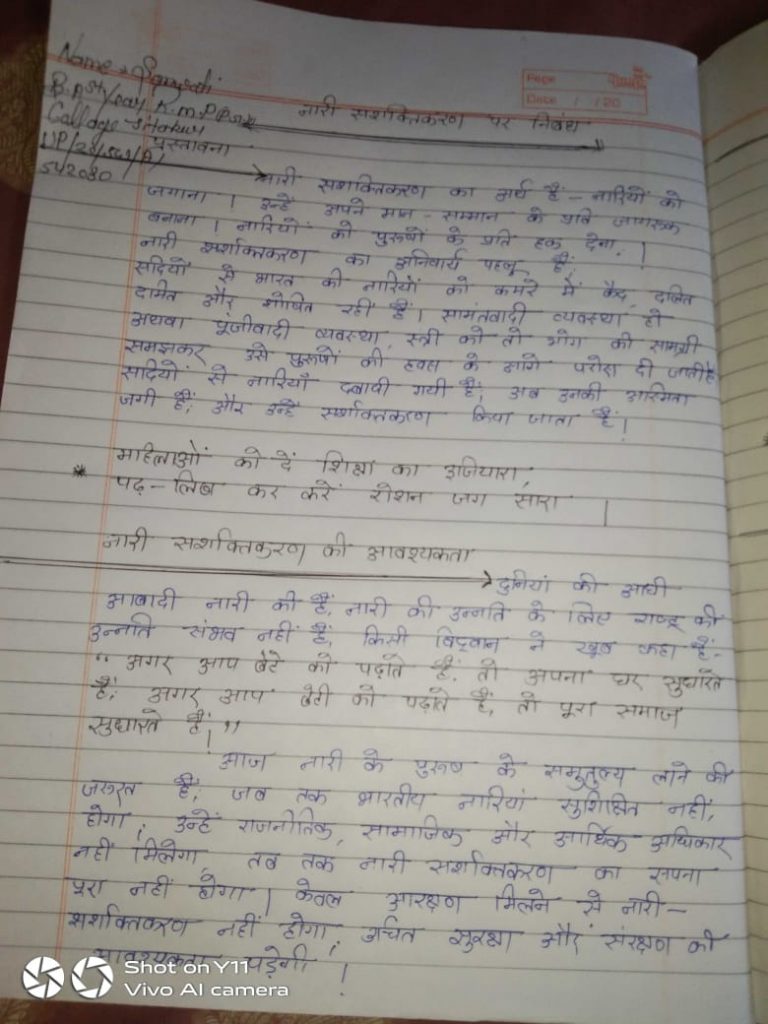 Name →
B.A 1st year R.M.P.P.
College
UP/21/543/01
542080
Page
Date / /20
नारी सशक्तिकरण पर निबंध
प्रस्तावना
नारी सशक्तिकरण का अर्थ हैं - नारियों को
जगाना । उन्हें अपने मान - सम्मान के प्रति जागरूक
बनाना । नारियों को पुरूषों के प्रति हक देना, ।
नारी सशक्तिकरण का अनिवार्य पहलू हैं,
सदियों से भारत की नारियों को कमरे में कैद, दलित
दामित और शोषित रहीं हैं। सामंतवादी व्यवस्था हो
अथवा पूंजीवादी व्यवस्था, स्त्री को तो भोग की सामग्री
समझकर उसे पुरूषों की हवस के आगे परोस दी जातीहै
सादियों से नारियाँ दबायी गयी हैं, अब उनकी अस्मिता
जगी हैं, और उन्हें सशक्तिकरण किया जाता हैं।
माहिलाओं को दें शिक्षा का उजियारा,
* पढ़ - लिख कर करें रोशन जग सारा ।
नारी सशक्तिकरण की आवश्यकता
दुनियां की आधी
आबादी नारी की हैं, नारी की उन्नति के लिए राष्ट्र की
उन्नति संभव नहीं हैं, किसी विद्वान ने खूब कहा हैं-
" अगर आप बेटे को पढ़ाते हैं. तो अपना घर सुधारते
हैं, अगर आप बेटी को पढ़ाते हैं, तो पूरा समाज
सुधारते हैं। "
आज नारी के पुरूष के समुतुल्य लाने की
जरुरत हैं, जब तक भारतीय नारियां सुशिक्षित नहीं,
होगा, उन्हें राजनीतिक, सामाजिक और आर्थिक अधिकार
नहीं मिलेगा, तब तक नारी सशक्तिकरण का सपना
पूरा नहीं होगा। केवल आरक्षण मिलने से नारी -
सशक्तिकरण नहीं होगा, उचित सुरक्षा और संरक्षण की
आवश्यकता पड़ेगी ।
Shot on Y11
Vivo AI camera